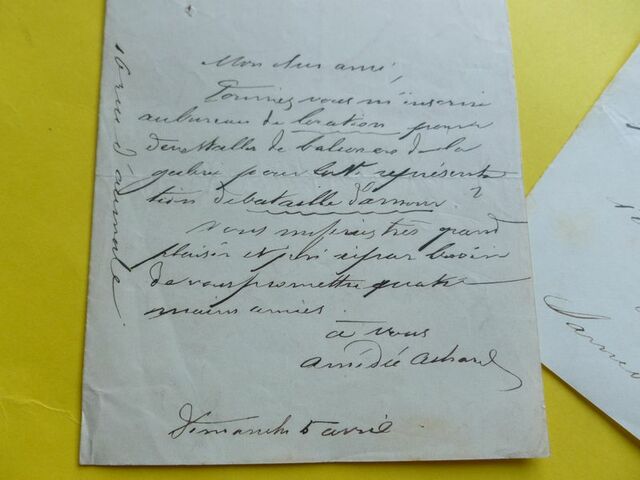 Mon cher ami,
Pourriez vous m'inscrire
au bureau de location pour
deux stalles de balcon ou de la
galerie pour la 1e représenta
tion de bataille d'amour ?
Vous me ferez très grand
plaisir et je n'ai pas besoin
de vous promettre quatre
mains amies.
à vous
amédée achard
Dimanche 5 avril
16 rue d'aumale
Samed